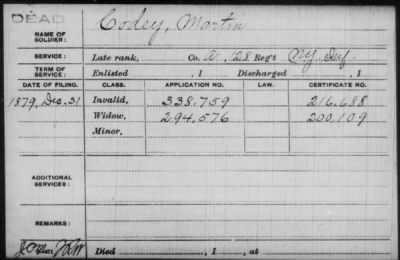 DEAD
NAME OF SOLDIER: Codey, Martin
SERVICE: Late rank, Co. A, 128 Reg't N.Y. Inf.
TERM OF SERVICE: Enlisted , 1 Discharged , 1
DATE OF FILING. CLASS. APPLICATION NO. LAW. CERTIFICATE NO.
1879, Dec. 31 Invalid, 338.759 216.688
Widow, 294.576 200.109
Minor,
ADDITIONAL SERVICES:
REMARKS:
Died , 1 , at